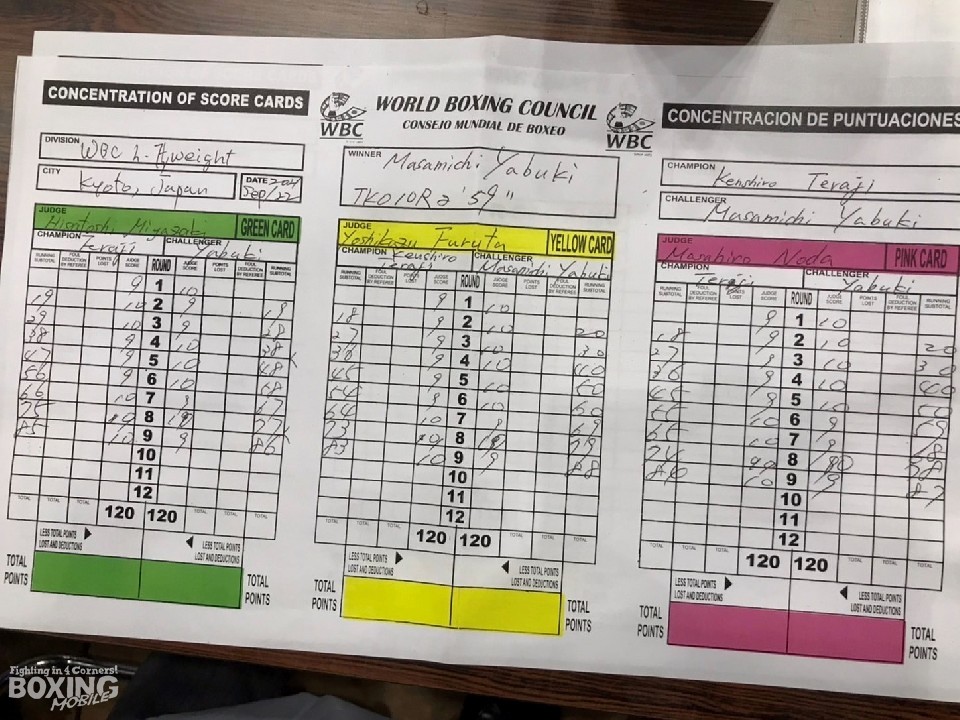 CONCENTRATION OF SCORE CARDS
WBC
WORLD BOXING COUNCIL
CONSEJO MUNDIAL DE BOXEO
WBC
CONCENTRACION DE PUNTUACIONES
DIVISION WBC L-Flyweight
CITY Kyoto, Japan
DATE
WINNER Masamichi Yabuki
TKO10R 2'59"
CHAMPION Kenshiro Teraji
CHALLENGER Masamichi Yabuki
JUDGE Hirotoshi Miyazaki GREEN CARD
CHAMPION Teraji CHALLENGER Yabuki
RUNNING SUBTOTAL FOUL DEDUCTION BY REFEREE POINTS LOST JUDGE SCORE ROUND JUDGE SCORE POINTS LOST FOUL DEDUCTION BY REFEREE RUNNING SUBTOTAL
9 1 10
19 10 2 9 19
29 10 3 9 28
38 9 4 10 38
47 9 5 10 48
56 9 6 10 58
66 10 7 9 67
75 8 77
85 10 9 9 86
10
11
12
TOTAL TOTAL TOTAL 120 120 TOTAL TOTAL TOTAL
LESS TOTAL POINTS LOST AND DEDUCTIONS
LESS TOTAL POINTS LOST AND DEDUCTIONS
TOTAL POINTS
TOTAL POINTS
JUDGE Yoshikazu Furuta YELLOW CARD
CHAMPION Kenshiro Teraji CHALLENGER Masamichi Yabuki
RUNNING SUBTOTAL FOUL DEDUCTION BY REFEREE POINTS LOST JUDGE SCORE ROUND JUDGE SCORE POINTS LOST FOUL DEDUCTION BY REFEREE RUNNING SUBTOTAL
9 1 10
18 9 2 10 20
27 9 3 10 30
36 9 4 10 40
45 9 5 10 50
54 9 6 10 60
64 10 7 9 69
73 8 79
83 10 9 9 88
10
11
12
TOTAL TOTAL TOTAL 120 120 TOTAL TOTAL TOTAL
LESS TOTAL POINTS LOST AND DEDUCTIONS
LESS TOTAL POINTS LOST AND DEDUCTIONS
TOTAL POINTS
TOTAL POINTS
JUDGE Masahiro Noda PINK CARD
CHAMPION Teraji CHALLENGER Yabuki
RUNNING SUBTOTAL FOUL DEDUCTION BY REFEREE POINTS LOST JUDGE SCORE ROUND JUDGE SCORE POINTS LOST FOUL DEDUCTION BY REFEREE RUNNING SUBTOTAL
9 1 10
18 9 2 10 20
27 9 3 10 30
36 9 4 10 40
45 9 5 10 50
55 10 6 9 59
65 10 7 9 68
74 8 78
84 10 9 9 87
10
11
12
TOTAL TOTAL TOTAL 120 120 TOTAL TOTAL TOTAL
LESS TOTAL POINTS LOST AND DEDUCTIONS
LESS TOTAL POINTS LOST AND DEDUCTIONS
TOTAL POINTS
TOTAL POINTS
Fighting in 4 Corners!
BOXING
MOBILE